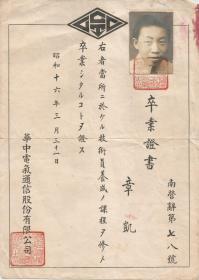 南營辭第七八號
卒業證書
章凱
右者當所ニ於ケル技術員養成ノ課程ヲ修メ
卒業シタルコトヲ證ス
昭和十六年三月三十一日
華中電氣通信股份有限公司